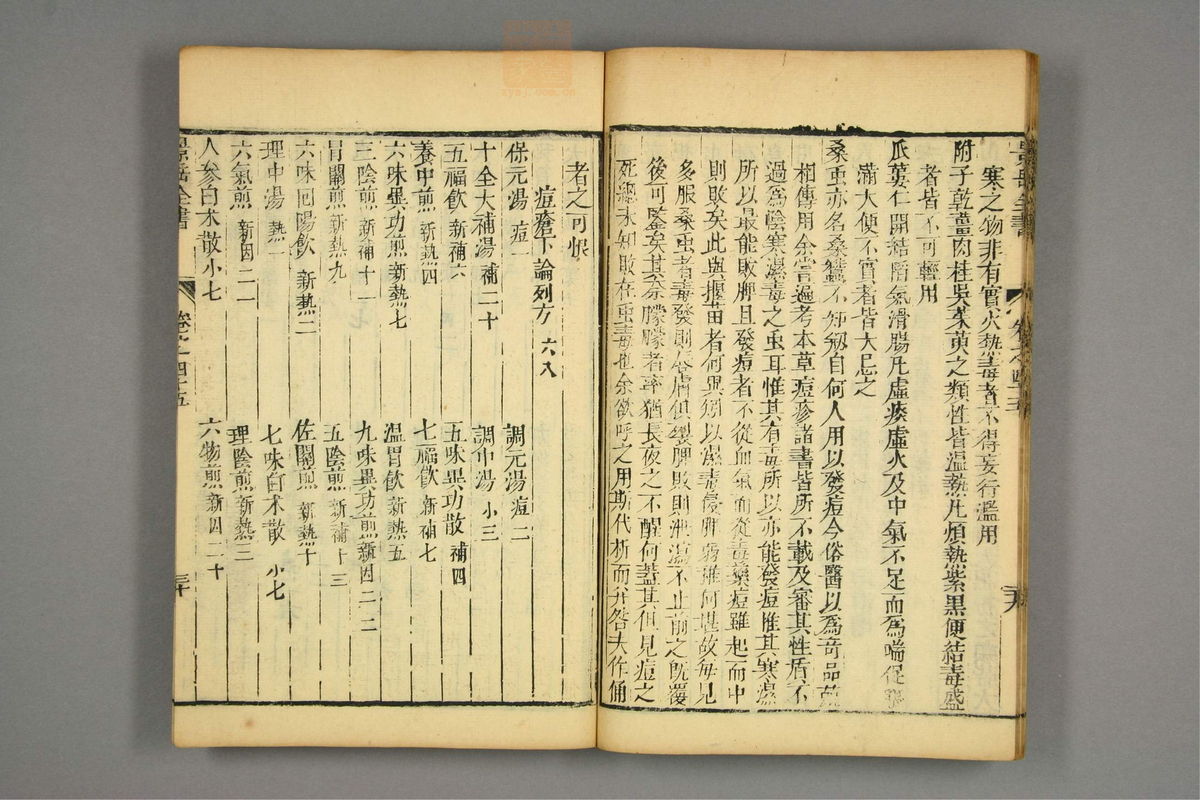 寒之物非有實火熱毒者不得妄行濫用
附子乾薑肉桂吳茱萸之類性皆溫熱凡煩熱紫黑便結毒盛
者皆不可輕用
瓜蔞仁開結陷氣滑腸凡虛痰虛火及中氣不足而為喘促
滿大便不實者皆大忌之
桑虫亦名桑蠶不知刱自何人用以發痘今俗醫以為奇品
相傳用余嘗遍考本草痘疹諸書皆所不載及審其性盾不
過為陰寒濕毒之虫耳惟其有毒所以亦能發痘惟其寒濕
所以最能敗脾且發痘者不從血氣而從毒藥痘雖起而中
則敗矣此與揠苗者何異矧以濕毒侵脾弱雖何堪故每見
多服桑虫者毒發則唇膚俱裂脾敗則泄瀉不止前之既覆
後可鑒矣其奈朦朦者率猶長夜之不醒何蓋其但見痘之
死總未知敗在虫毒也余欲呼之用斯代析而并咎夫作俑
者之可恨
痘瘡下論列方 六八
保元湯 痘一 調元湯 痘二
十全大補湯 補二十 調中湯 小三
五福飲 新補六 五味異功散 補四
養中煎 新熱四 七福飲 新補七
六味異功煎 新熱七 溫胃飲 新熱五
三陰煎 新補十一 九味異功煎 新因二二
胃關煎 新熱九 五陰煎 新補十三
六味回陽飲 新熱二 佐關煎 新熱十
理中湯 熱一 七味白朮散 小七
六氣煎 新因二一 理陰煎 新熱三
人參白朮散 小七 六物煎 新因二十
景岳全書 卷之四十五 三十